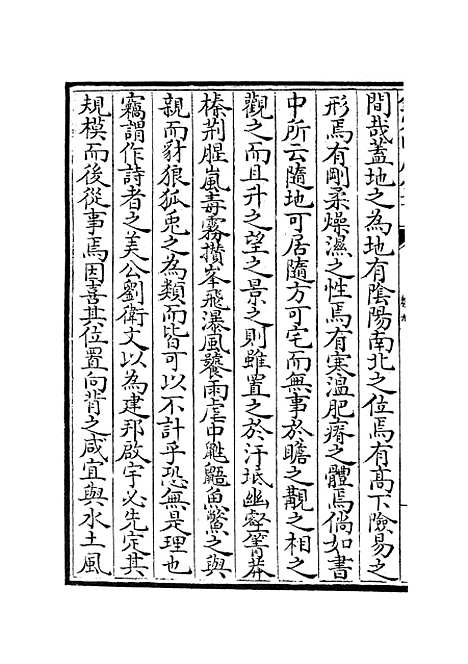 間哉蓋地之為地有陰陽南北之位焉有高下險易之
形焉有剛柔燥濕之性焉有寒溫肥瘠之體焉倘如書
中所云隨地可居隨方可宅而無事於瞻之觀之相之
觀之而且升之望之景之則雖置之於汙坻幽壑菁莽
榛荆腥嵐毒霧攢峯飛瀑風饕雨虐中黿鼉魚鱉之與
親而豺狼狐兎之為類而皆可以不計乎恐無是理也
竊謂作詩者之美公劉衛文以為建邦啟宇必先定其
規模而後從事焉因喜其位置向背之咸宜與水土風